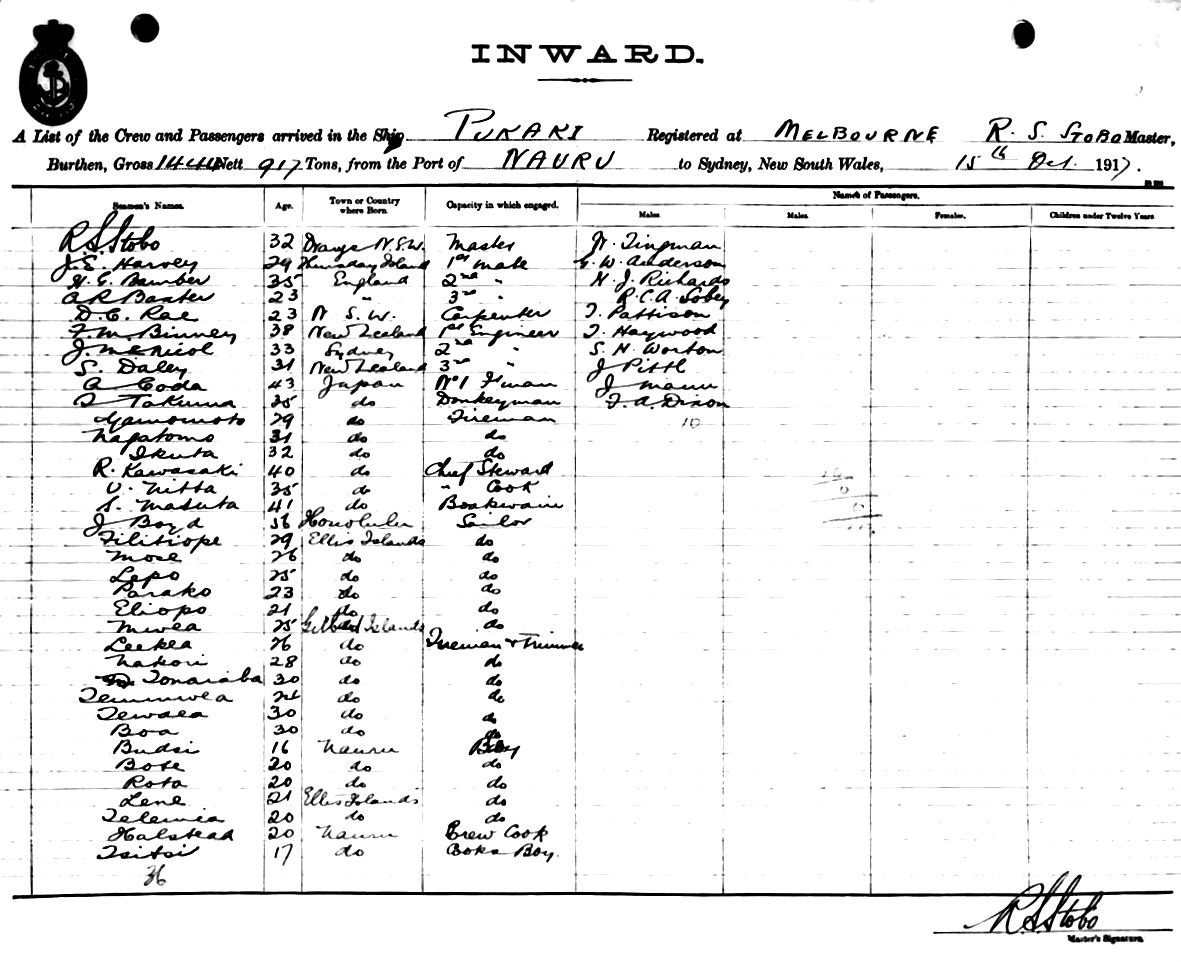 INWARD.
A List of the Crew and Passengers arrived in the Ship PUKAKI Registered at MELBOURNE R. S. STOBO Master,
Burthen, Gross 1444 Nett 917 Tons, from the Port of NAURU to Sydney, New South Wales, 15th Oct. 1917.
Names of Passengers.
Seamen's Names. Age. Town or Country where Born. Capacity in which engaged. Males. Males. Females. Children under Twelve Years
R.S. Stobo 32 N.S.W. Master W. Tingman
J. E. Harvey 29 Thursday Island 1st Mate G. W. Anderson
H. G. Bamber 35 England 2nd " H. J. Richards
A R Baxter 23 " 3rd " R. C. A. Sobey
D. C. Rae 23 N S. W. Carpenter T. Pattison
F. M. Binney 38 New Zealand 1st Engineer T. Haywood
J. McNicol 33 Sydney 2nd " S. H. Worton
S. Daley 31 New Zealand 3rd " J Pittl
A Goda 43 Japan No 1 F'man J Mann
T Takuma 35 do Donkeyman F. A. Dixon
Yamomoto 29 do Fireman 10
Nagatomo 31 do do
Ikuta 32 do do
R. Kawasaki 40 do Chief Steward
U. Nitta 35 do " Cook
S. Matsuta 41 do Boatswain
J Boyd 56 Honolulu Sailor
Filitiope 29 Ellis Islands do
Mose 26 do do
Lepo 25 do do
Parako 23 do do
Eliopo 21 do do
Mwea 25 Gilbert Islands do
Leekea 26 do Fireman & Trimmer
Nakori 28 do do
Tonaiaba 30 do do
Temmwea 24 do do
Tewaea 30 do do
Boa 30 do do
Budsi 16 Nauru Boy
Bose 20 do do
Rota 20 do do
Lene 21 Ellis Islands do
Telemia 20 do do
Halstead 20 Nauru Crew Cook
Tsitsi 17 do Cooks Boy.
36
R.S. Stobo
Master's Signature.